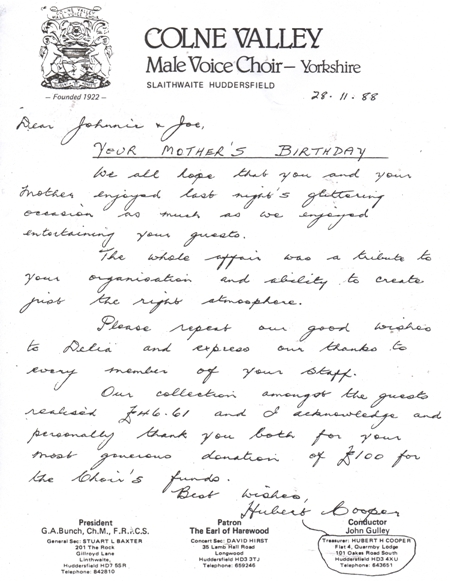 COLNE VALLEY
Male Voice Choir – Yorkshire
SLAITHWAITE HUDDERSFIELD
– Founded 1922 –
28-11-88
Dear Johnnie & Joe,
YOUR MOTHER'S BIRTHDAY
We all hope that you and your
mother enjoyed last night's glittering
occasion as much as we enjoyed
entertaining your guests.
The whole affair was a tribute to
your organisation and ability to create
just the right atmosphere.
Please repeat our good wishes
to Delia and express our thanks to
every member of your staff.
Our collection amongst the guests
realised £46.61 and I acknowledge and
personally thank you both for your
most generous donation of £100 for
the Choir's funds.
Best wishes,
Hubert Cooper
President
G.A.Bunch, Ch.M., F.R.I.C.S.
General Sec: STUART L BAXTER
201 The Rock
Gillroyd Lane
Linthwaite,
Huddersfield HD7 5SR
Telephone: 842810
Patron
The Earl of Harewood
Concert Sec: DAVID HIRST
35 Lamb Hall Road
Longwood
Huddersfield HD3 3TJ
Telephone: 659246
Conductor
John Gulley
Treasurer: HUBERT H COOPER
Flat 4, Quarmby Lodge
101 Oakes Road South
Huddersfield HD3 4XU
Telephone: 643651